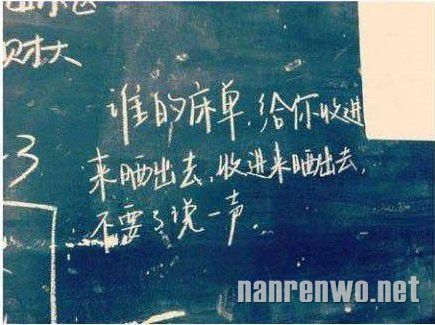 财大
谁的床单,给你收进
来晒出去,收进来晒出去,
不要了说一声.
-3
nanrenwo.net